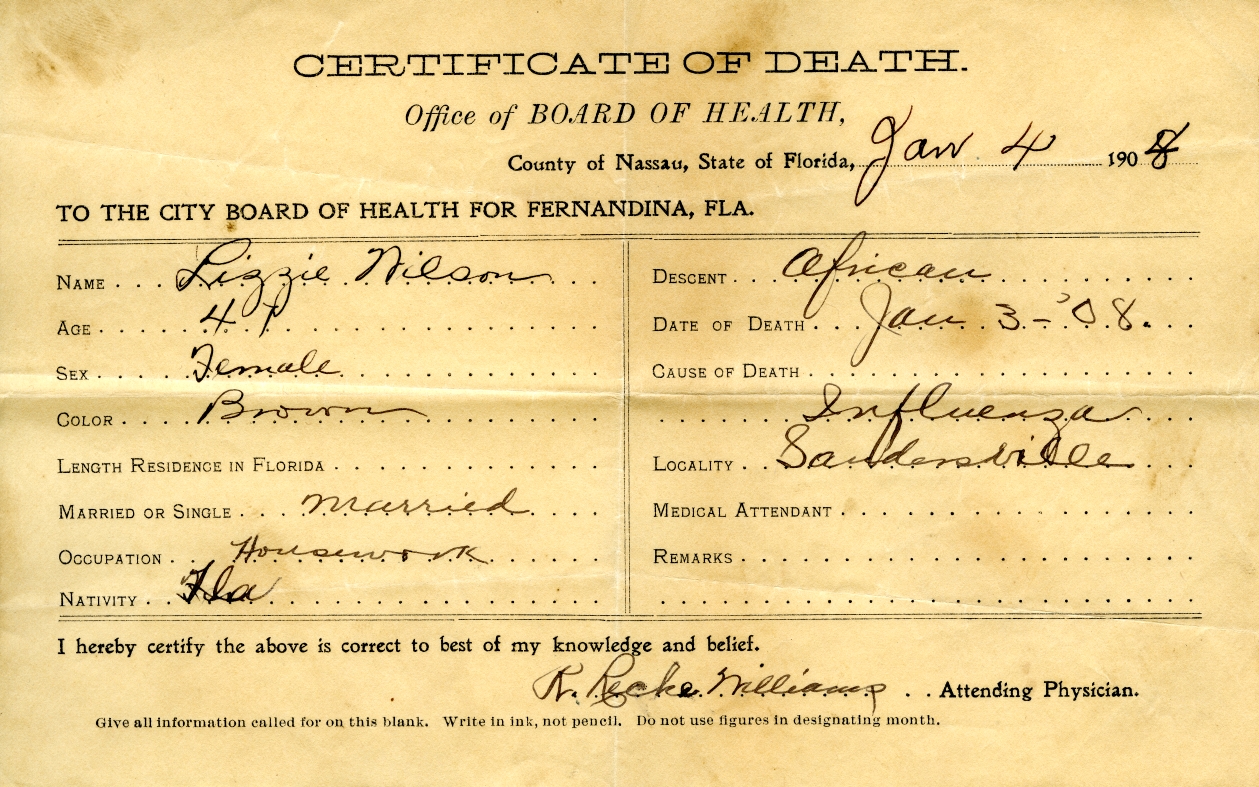 CERTIFICATE OF DEATH.
Office of BOARD OF HEALTH,
County of Nassau, State of Florida, Jan 4 1908
TO THE CITY BOARD OF HEALTH FOR FERNANDINA, FLA.
NAME Lizzie Wilson
AGE 47
SEX Female
COLOR Brown
LENGTH RESIDENCE IN FLORIDA
MARRIED OR SINGLE Married
OCCUPATION Housework
NATIVITY Fla
DESCENT African
DATE OF DEATH Jan 3-'08.
CAUSE OF DEATH
Influenza
LOCALITY Sandersville
MEDICAL ATTENDANT
REMARKS
I hereby certify the above is correct to best of my knowledge and belief.
Williams Attending Physician.
Give all information called for on this blank. Write in ink, not pencil. Do not use figures in designating month.